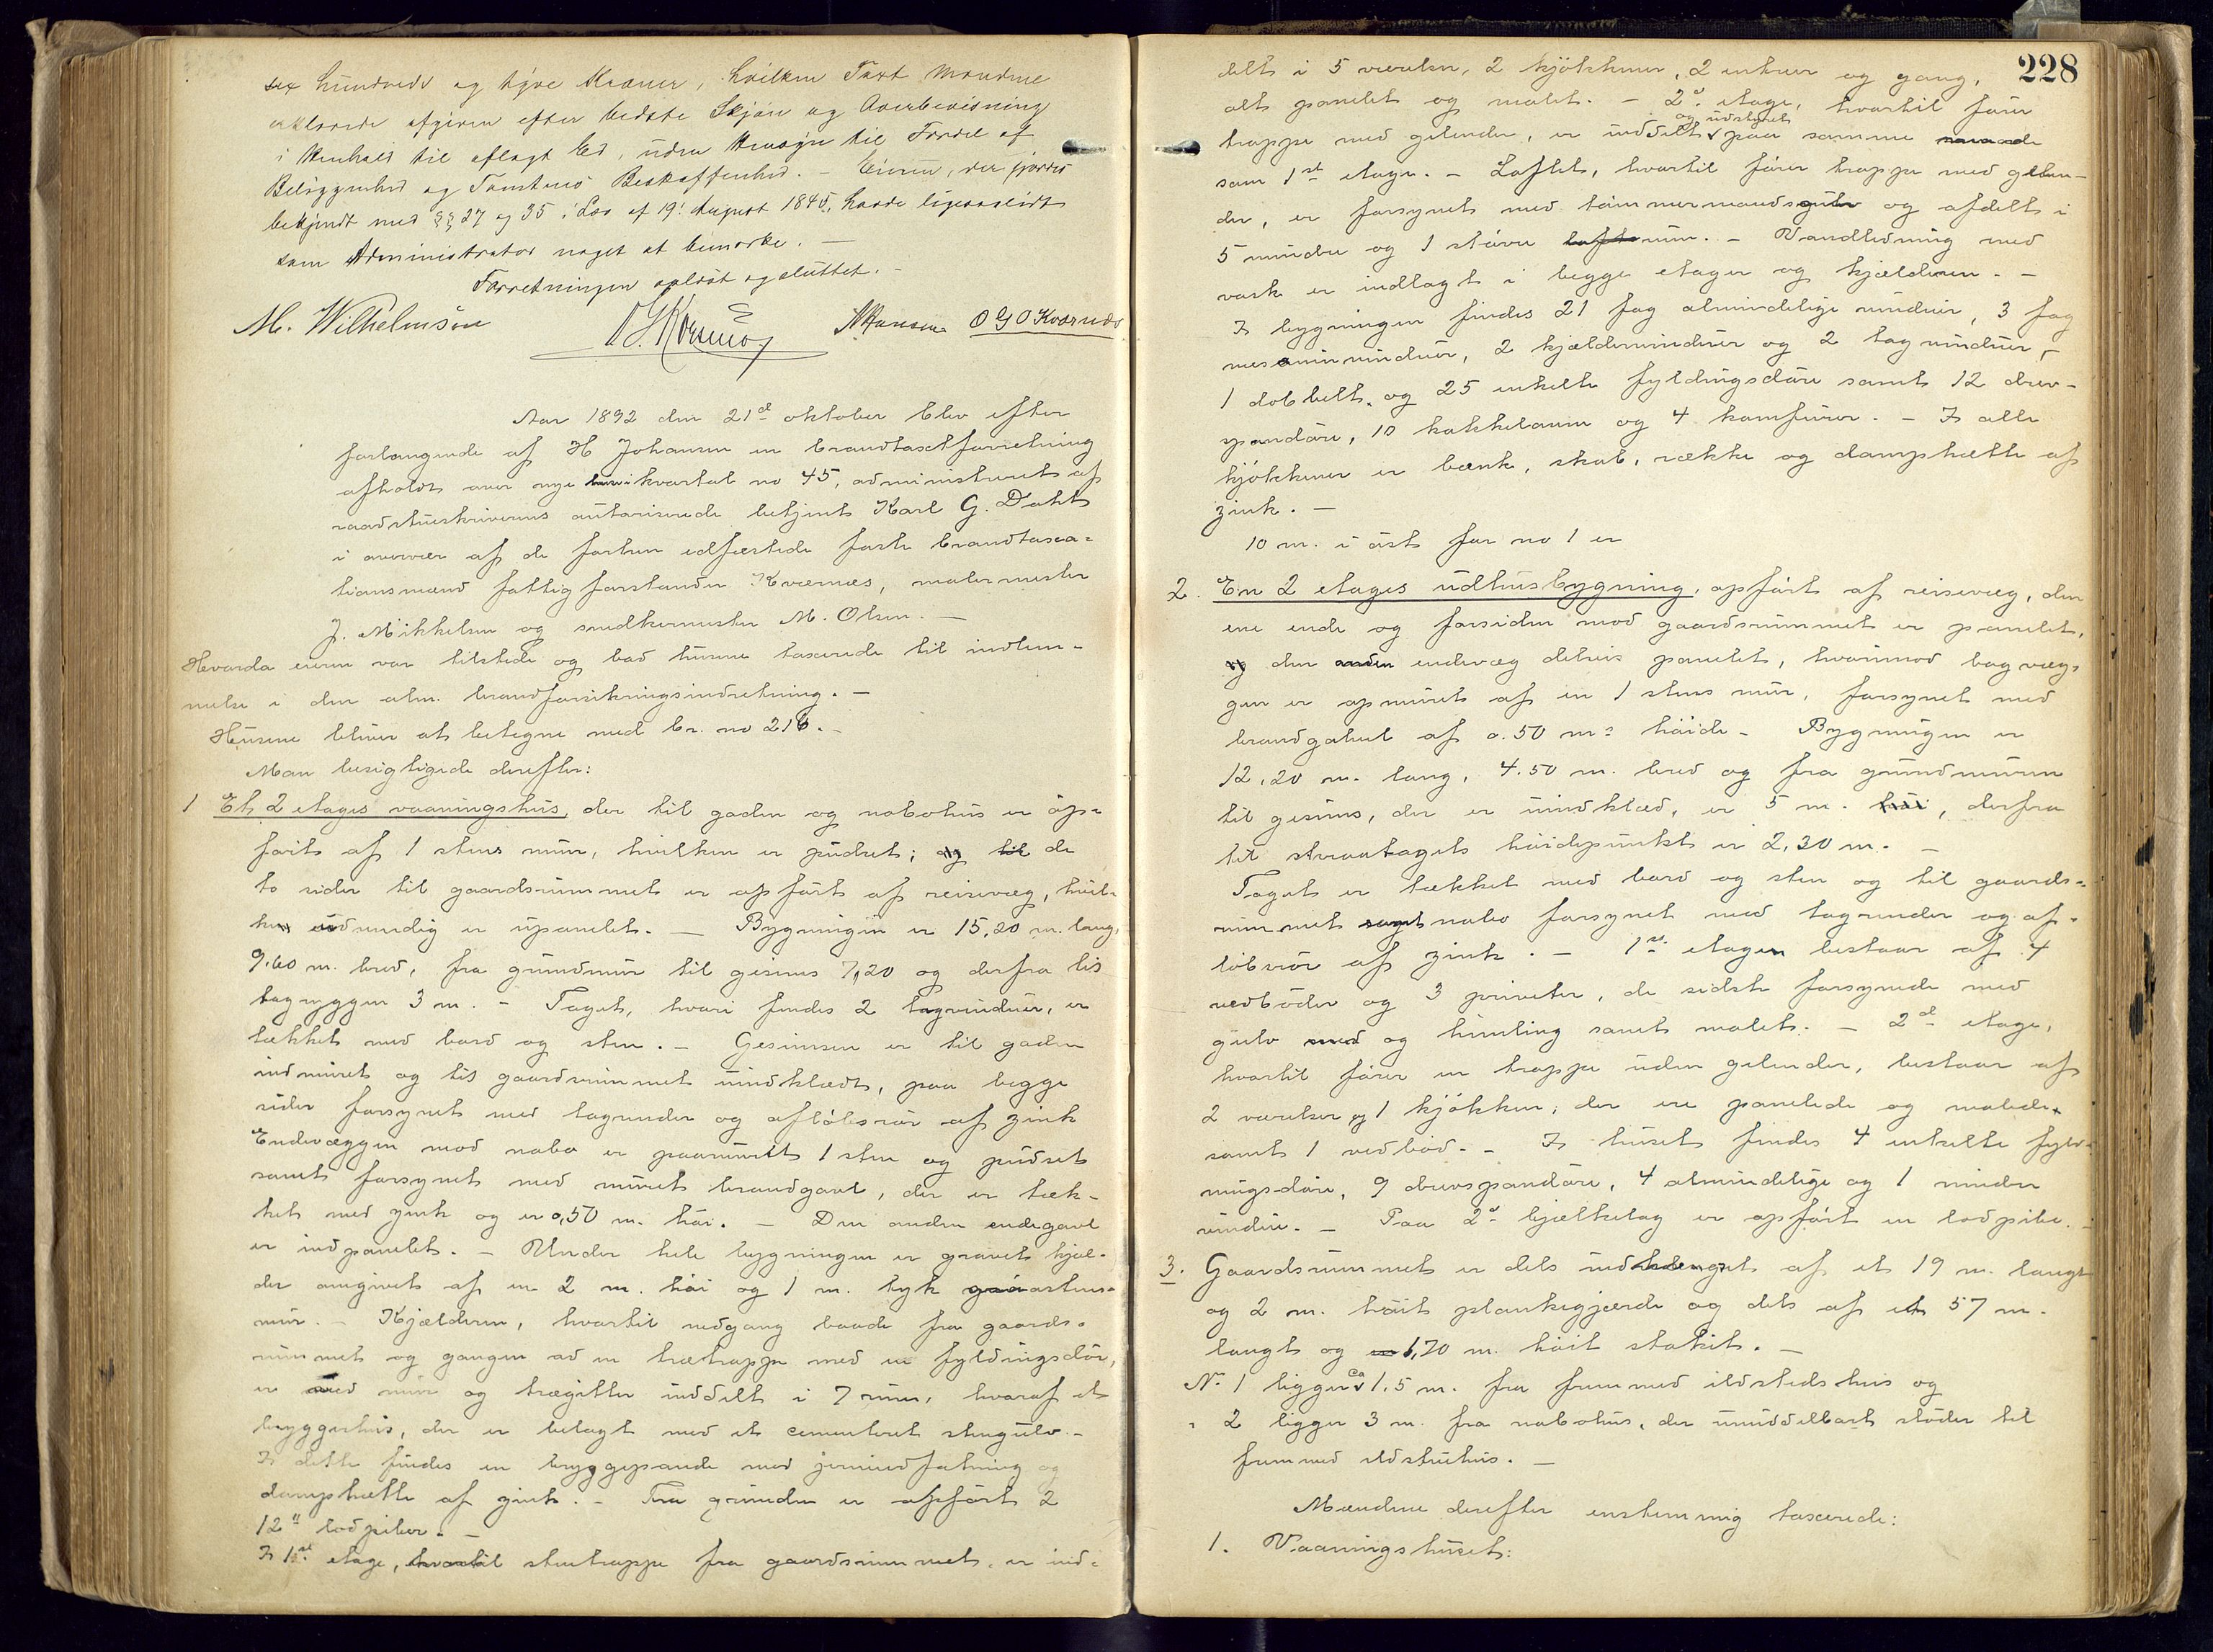 sex hundrede og tyve Kroner, hvilken Taxt Mændene
erklærede afgiven efter bedste Skjøn og Overbevisning
i Henhold til aflagt Ed, uden Hensyn til Fordel af
Beliggenhed og Tomtens Beskaffenhed. – Eieren, der gjordes
bekjendt med §§ 27 og 35 i Lov af 19. August 1845, havde ligesaalidt
som Administrator noget at bemærke. –
Forretningen oplæst og sluttet. –
M. Wilhelmsen
O G O Kværnæs
Aar 1892 den 21d oktober blev efter
forlangende af H Johansen en brandtaxtforretning
afholdt over nye huse i kvartal no 45, administreret af
raadstueskriverens autoriserede betjent Karl G. Dahl
i overvær af de forhen edfæstede faste brandtaxa-
tionsmænd fattigforstander Kværnæs, malermester
J. Mikkelsen og snedkermester M. Olsen. –
Hvorda eieren var tilstede og bad husene taxerede til indlem-
melse i den alm. brandforsikringsindretning. –
Husene bliver at betegne med br. no 216. –
Man besigtigede derefter:
1 Et 2 etages vaaningshus, der til gaden og nabohus er op-
ført af 1 stens mur, hvilken er pudset; og til de
to sider til gaardsrummet er opført af reisevæg, hvil-
ken udvendig er upanelet. – Bygningen er 15,20 m. lang,
9.60 m. bred, fra grundmur til gesims 7,20 og derfra til
tagryggen 3 m. – Taget, hvori findes 2 tagvinduer, er
tækket med bord og sten. – Gesimsen er til gaden
indmuret og til gaardsrummet uindklædt, paa begge
sider forsynet med tagrender og afløbsrør af zink
Endevæggen mod nabo er paamuret 1 sten og pudset
samt forsynet med muret brandgavl, der er tæk-
ket med zink og er 0,50 m. høi. – Den anden endegavl
er indpanelet. – Under hele bygningen er gravet kjæl-
der omgivet af en 2 m. høi og 1 m. tyk graastens-
mur. – Kjælderen, hvortil nedgang baade fra gaards-
rummet og gangen ad en trætrappe med en fyldingsdør,
er med mur og trægitter inddelt i 7 rum, hvoraf et
bryggerhus, der er belagt med et cementeret stengulv. –
I dette findes en bryggepande med jernindfatning og
damphætte af zink. – Fra grunden er opført 2
12" lodpiber. –
I 1ste etage, hvortil stentrappe fra gaardsrummet, er ind-
228
delt i 5 værelser, 2 kjøkkener, 2 entreer og gang,
alt panelet og malet. – 2d etage, hvortil fører
og udstyret
trappe med gelender, er inddelt paa samme maade
som 1st etage. – Loftet, hvortil fører trappe med gelen-
der, er forsynet med tømmermandsgulv og afdelt i
5 mindre og 1 større loftsrum. – Vandledning med
vask er indlagt i begge etager og kjælderen. –
I bygningen findes 21 fag almindelige vinduer, 3 fag
mesaninvinduer, 2 kjældervinduer og 2 tagvinduer, –
1 dobbelt og 25 enkelte fyldingsdøre samt 12 drev-
spandøre, 10 kakkelovne og 4 komfurer. – I alle
kjøkkener er bænk, skab, række og damphætte af
zink. –
10 m. i øst for no 1 er
2. En 2 etages udhusbygning, opført af reisevæg, den
ene ende og forsiden mod gaardsrummet er panelet,
og den anden endevæg delvis panelet, hvorimod bagvæg-
gen er opmuret af en 1 stens mur, forsynet med
brandgavl af 0.50 m. høide – Bygningen er
12,20 m. lang, 4.50 m. bred og fra grundmuren
til gesims, der er uindklæd, er 5 m. høi, derfra
til skraatagets høidepunkt er 2,30 m. –
Taget er tækket med bord og sten og til gaards-
rummet samt nabo forsynet med tagrender og af-
løbsrør af zink. – 1ste etagen bestaar af 4
vedboder og 3 priveter, de sidste forsynede med
gulv med og himling samt malet. – 2d etage,
hvortil fører en trappe uden gelender, bestaar af
2 værelser og 1 kjøkken, der ere panelede og malede,
samt 1 vedbod. – I huset findes 4 enkelte fyld-
ningsdøre, 9 drevspandøre, 4 almindelige og 1 mindre
vindue. – Paa 2d bjælkelag er opført en lodpibe. –
3. Gaardsrummet er dels indhænget af et 19 m. langt
og 2 m. høit plankegjærde og dels af et 57 m.
langt og 1,70 m. høit stakit. –
No 1 ligger ca 1.5 m. fra fremmed ildstedshus og
" 2 ligger 3 m. fra nabohus, der umiddelbart støder til
fremmed ildstuhus. –
Mændene derefter enstemmig taxerede:
1. Vaaningshuset: